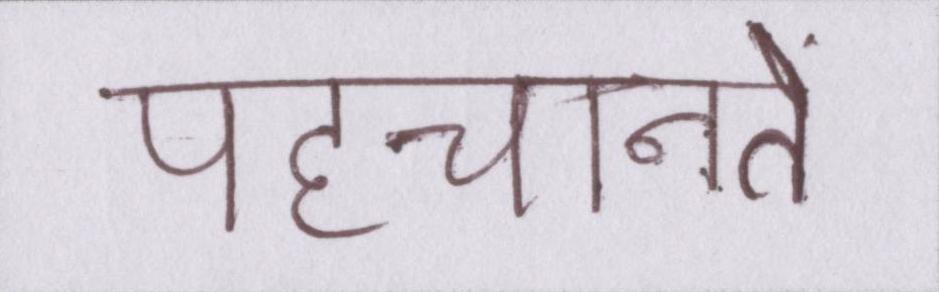 पहचानतें